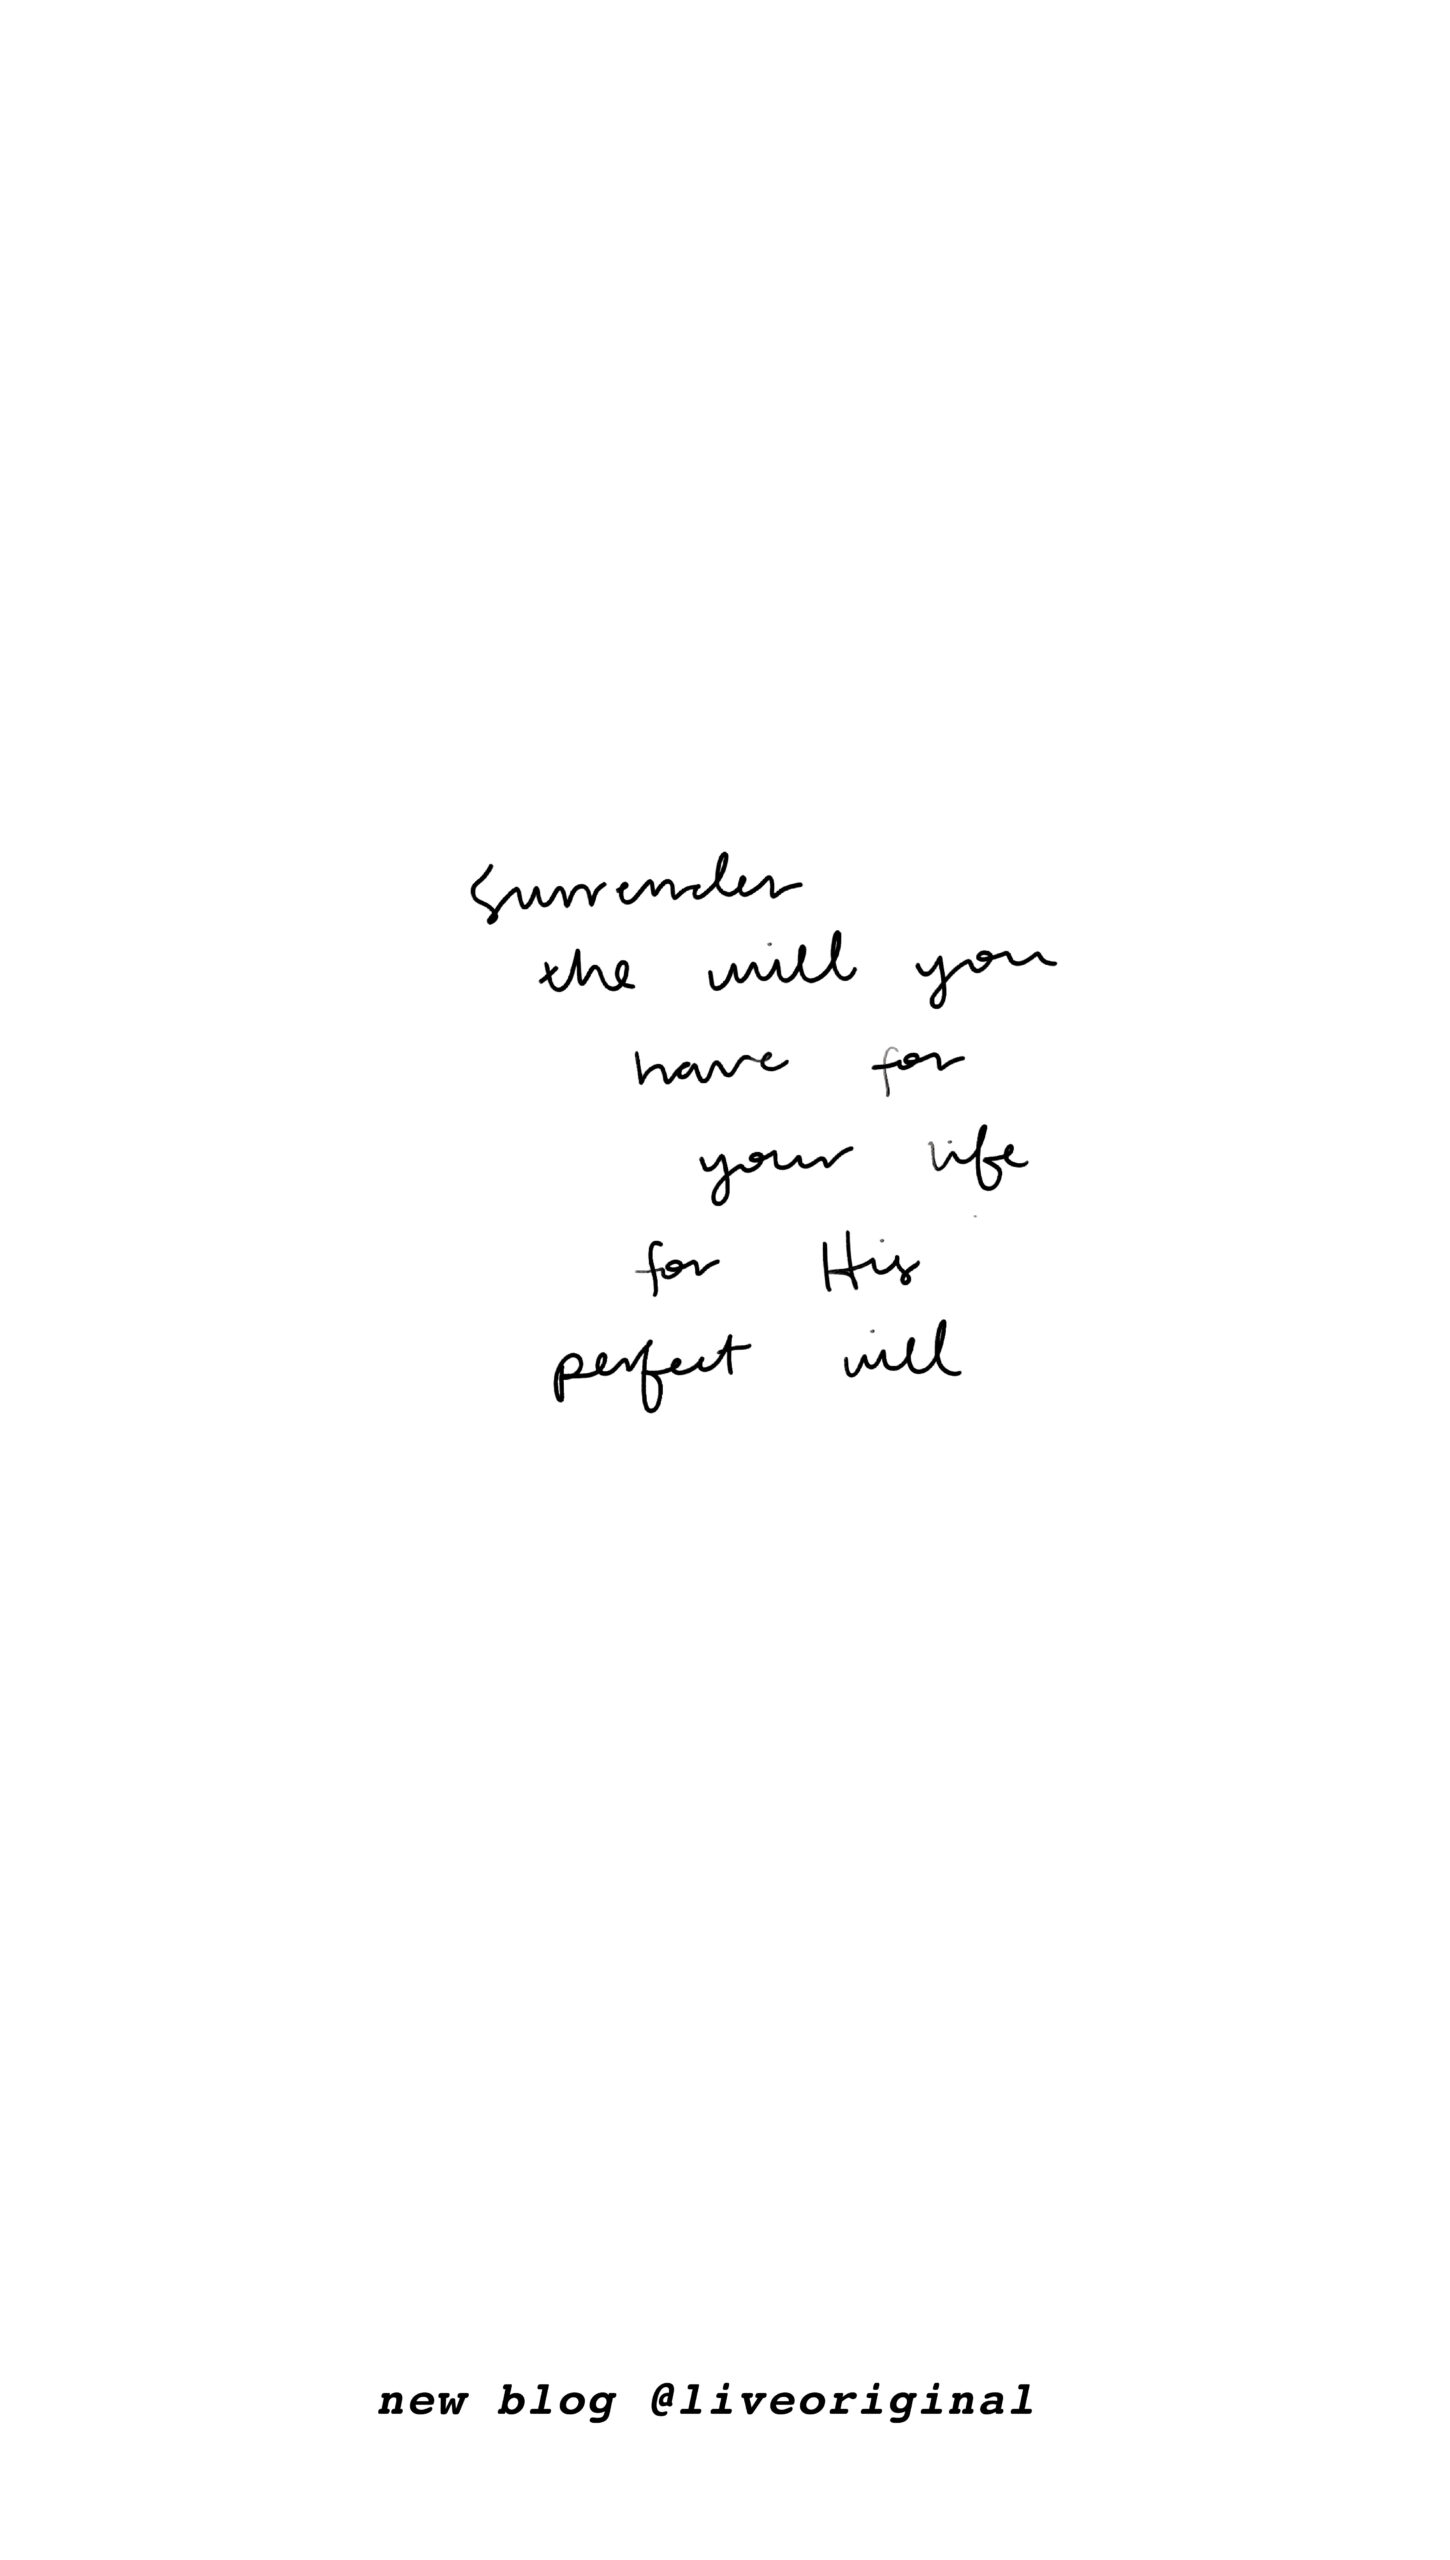 Surrender
the will you
have for
your life
for His
perfect will
new blog @liveoriginal